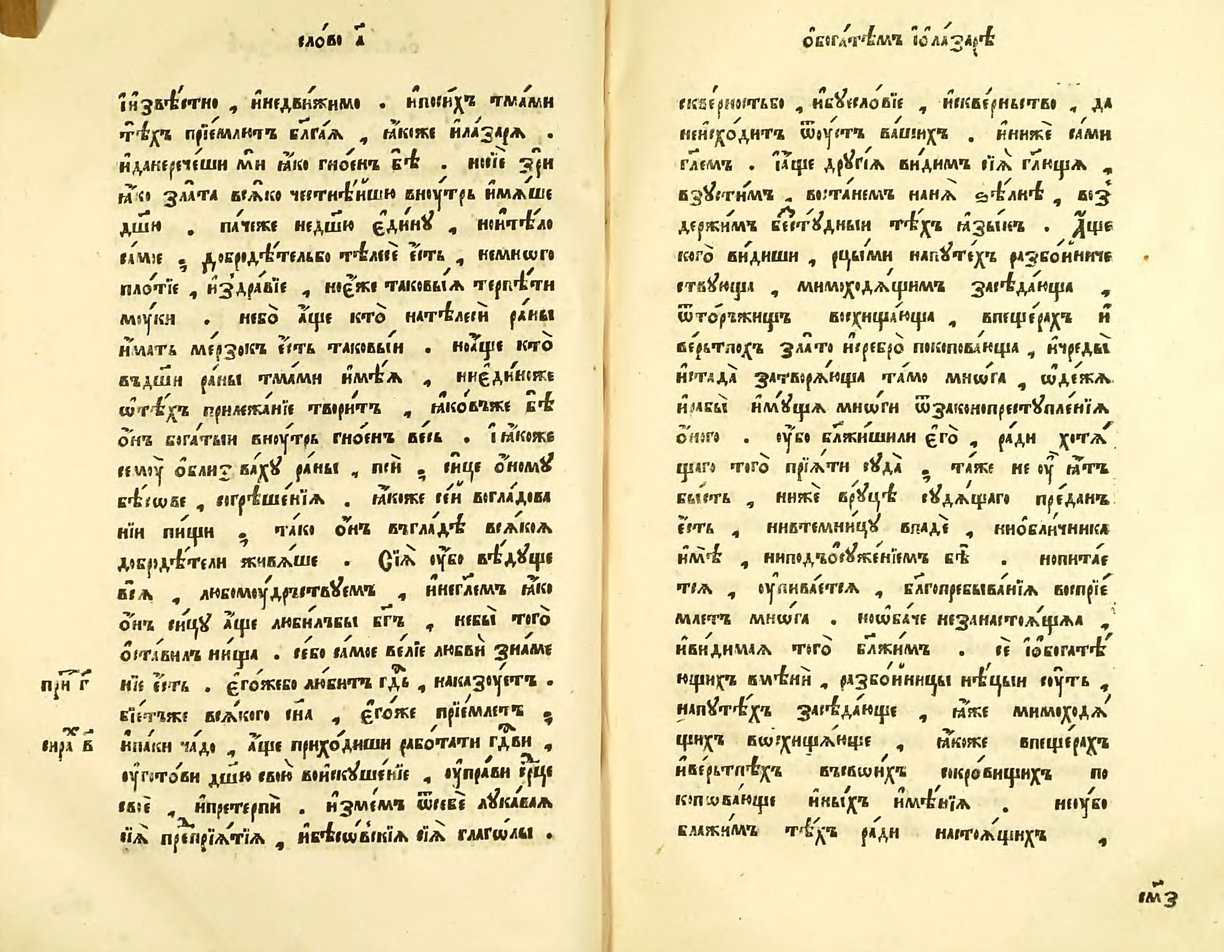 сло́во а҃
і҆извѣ́стно , и҆недви́жимо . и҆поси́хъ тма́ми
тѣ́хъ прїе́млютъ бл҃га́ѧ , ꙗ҆́коже и҆ла́зарѧ .
и҆данерече́ши мѝ ꙗ҆́ко гно́енъ бѣ̀ . носїѐ зрѝ
ꙗ҆́ко зла́та всѧ́ко честнѣ́йшю внꙋ́трь и҆мѧ́ше
дш҃ю . па́чеже недш҃ю є҆ди́нꙋ , нои҆тѣ́ло
са́мое ; добродѣ́тельбо тѣлесѐ є҆́сть , немно́го
пло́тїе , и҆здра́вїе , ноє҆́же таковы́ѧ терпѣ́ти
мꙋ́ки . небо̀ а҆́ще кто̀ натѣлесѝ ра́ны
и҆́мать ме́рзокъ є҆́сть таковы́и . ноа҆́ще кто̀
въдш҃и ра́ны тма́ми и҆мѣ́ѧ , ниє҆ди́ноже
ѡ҆тѣ́хъ прилежа́нїе твори́тъ , ꙗ҆ко́въже бѣ̀
о҆́нъ бога́тыи внꙋ́трь гно́енъ ве́сь . і҆ꙗ҆́коже
семꙋ̀ о҆бли́зовахꙋ ра́ны , псѝ ; си́це о҆́номꙋ
бѣ́сѡве , согрѣше́нїѧ . ꙗ҆́коже се́й возгла́дова
нїи пи́щи ; та́ко о҆́нъ възгла́дѣ всѧ́коѧ
добродѣ́тели живѧ́ше . Сїѧ̀ ᲂу҆́бо вѣ́дꙋще
всѧ̀ , любомꙋ́дрьствꙋемъ , и҆негл҃емъ ꙗ҆́ко
о҆́нъ си́цꙋ а҆́ще люби́лъбы бг҃ъ , небы̀ того̀
ѡ҆ста́вилъ ни́ща . себо са́мое ве́лїе любвѝ зна́ме
нїе є҆́сть . є҆го́жебо лю́битъ гд҇ь , наказꙋ́етъ .
бїе́тъже всѧ́кого сн҃а , є҆го́же прїе́млетъ ;
и҆па́ки ча́до , а҆́ще прихо́диши рабо́тати гд҇ви ,
ᲂу҆гото́ви дш҃ю свою̀ воискꙋше́нїе , ᲂу҆пра́ви ср҇це
своѐ , и҆претерпѝ . и҆зме́мъ ѿсебѐ лꙋка́ваѧ
сїѧ̀ препрїѧ́тїѧ , и҆бѣсѡ́вскїѧ сїѧ̀ глаго́лы .
при г҃
сира в҃
о҆бога́тѣмъ і҆ола́зарѣ
скве́рностьбо , и҆бꙋесло́вїе , и҆скве́рньство , да
неисхо́дитъ ѿꙋ́стъ ва́шихъ . и҆нижѐ са́ми
гл҃емъ . і҆а҆́ще дрꙋгі́ѧ ви́димъ сїѧ̀ гл҃ющѧ ,
взꙋ́стимъ , воста́немъ нанѧ̀ ѕѣ́лнѣ , воз
держи́мъ безстꙋ́дныи тѣ́хъ ꙗ҆зы́къ . А҆́ще
кого̀ ви́диши , рцы́ми напꙋте́хъ разбо́йниче
ствꙋюща , мимоходѧ́щимъ засѣда́юща ,
ѿто́ржищъ восхища́юща , впеще́рахъ и҆
ве́рьтпохъ зла́то и҆сребро̀ покопова́юща , и҆чреды̀
и҆стада̀ затворѧ́юща та́мо мнѡ́га , ѡ҆де́жѧ
и҆рабы̀ и҆мꙋ́щѧ мнѡ́ги ѿзаконопрестꙋпле́нїѧ
о҆́ного . ᲂу҆́бо бл҃жи́шили є҆го̀ , ра́ди хотѧ́
щаго того̀ прїѧ́ти сꙋда̀ ; та́же не ᲂу҆̀ ꙗ҆́тъ
бы́сть , нижѐ врꙋцѣ̀ сꙋдѧ́щаго пре́данъ
є҆́сть , нивтемни́цꙋ впадѐ , ниоблични́ка
и҆мѣ̀ , ниподъосꙋже́нїемъ бѣ̀ . нопита́е
тсѧ , ᲂу҆пива́етсѧ , бл҃гопребыва́нїѧ воспрїе́
млетъ мнѡ́га . нооба́че незанастоѧ́щѧѧ ,
и҆ви́димаѧ того̀ бл҃жи́мъ . сѐ і҆обогатѣ́
ющихъ вмѣнѝ , разбо́йницы нѣ́цыи сꙋ́ть ,
напꙋте́хъ засѣда́юще , ꙗ҆́же мимоходѧ́
щихъ восхища́юще , ꙗ҆́коже впеще́рахъ
и҆ве́рьтпѣхъ въсвои́хъ сокро́вищихъ по
копѡва́юще и҆ны́хъ и҆мѣ́нїѧ . неᲂу҆́бо
блажи́мъ тѣ́хъ ра́ди настоѧ́щихъ ,
см҃з